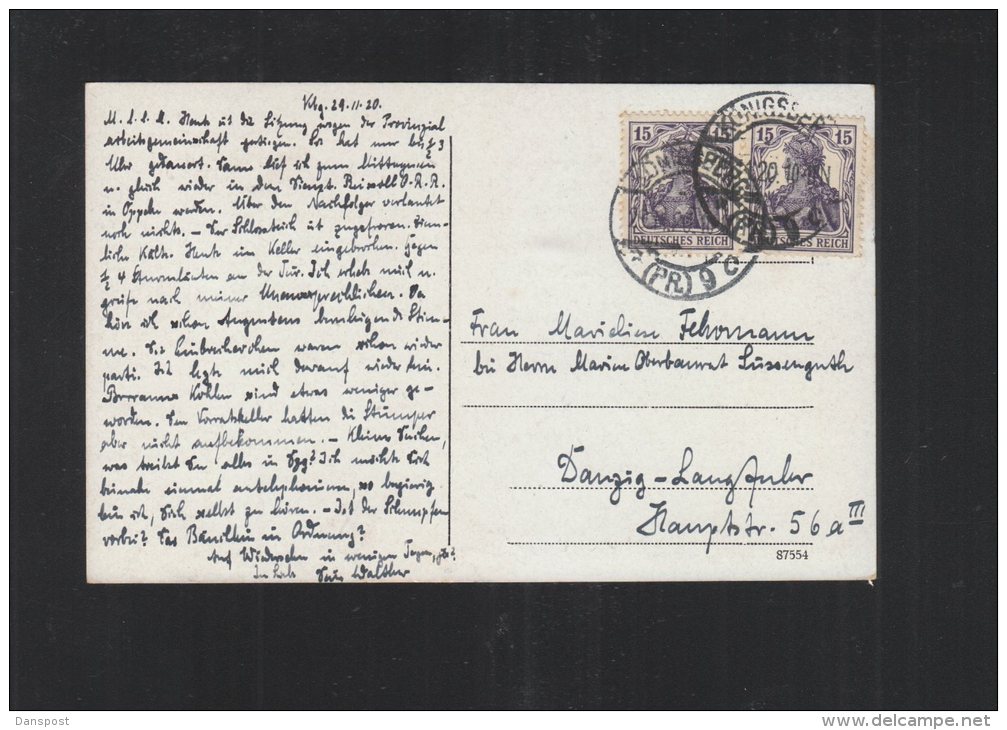 Kbg. 29.11.20.
M. l. l. M. Heute ist die Sitzung wegen der Provinzial
arbeitsgemeinschaft gestiegen. Sie hat nur bis ½ 3
Uhr gedauert. Dann lief ich zum Mittagessen
u. gleich wieder in den Dienst. O.R.R.
in Oppeln werden. Über den Nachfolger verlautet
noch nichts. – Der Schlossteich ist zugefroren.
liche Kälte. Heute im Keller eingebrochen. gegen
½ 4 an der Tür. Ich erhob mich u.
griff nach meiner Unaussprechlichen. Da
höre ich schon Augustens beruhigende Stim-
me. Die Einbrecherchen waren schon wieder
parti. Ich legte mich darauf wieder hin.
Kohlen sind etwas weniger ge-
worden. Den Vorratskeller hatten die Stümper
aber nicht aufbekommen. – Kleine
was treibst Du alles in Dzg? Ich möchte Dich
beinahe einmal antelephonieren, so begierig
bin ich, Dich selbst zu hören. – Ist der Schnupfen
vorbei? Das in Ordnung?
Auf Wiedersehn in wenigen Tagen,
In Liebe Dein Walther
15 15
DEUTSCHES REICH
15 15
DEUTSCHES REICH
KÖNIGSBERG
(PR.) 9 c
KÖNIGSBERG
(PR.) 9 c
Frau
bei Herrn Marine Oberbaurat Süssenguth
Danzig-Langfuhr
Hauptstr. 56a III
87554
Danspost
www.delcampe.net